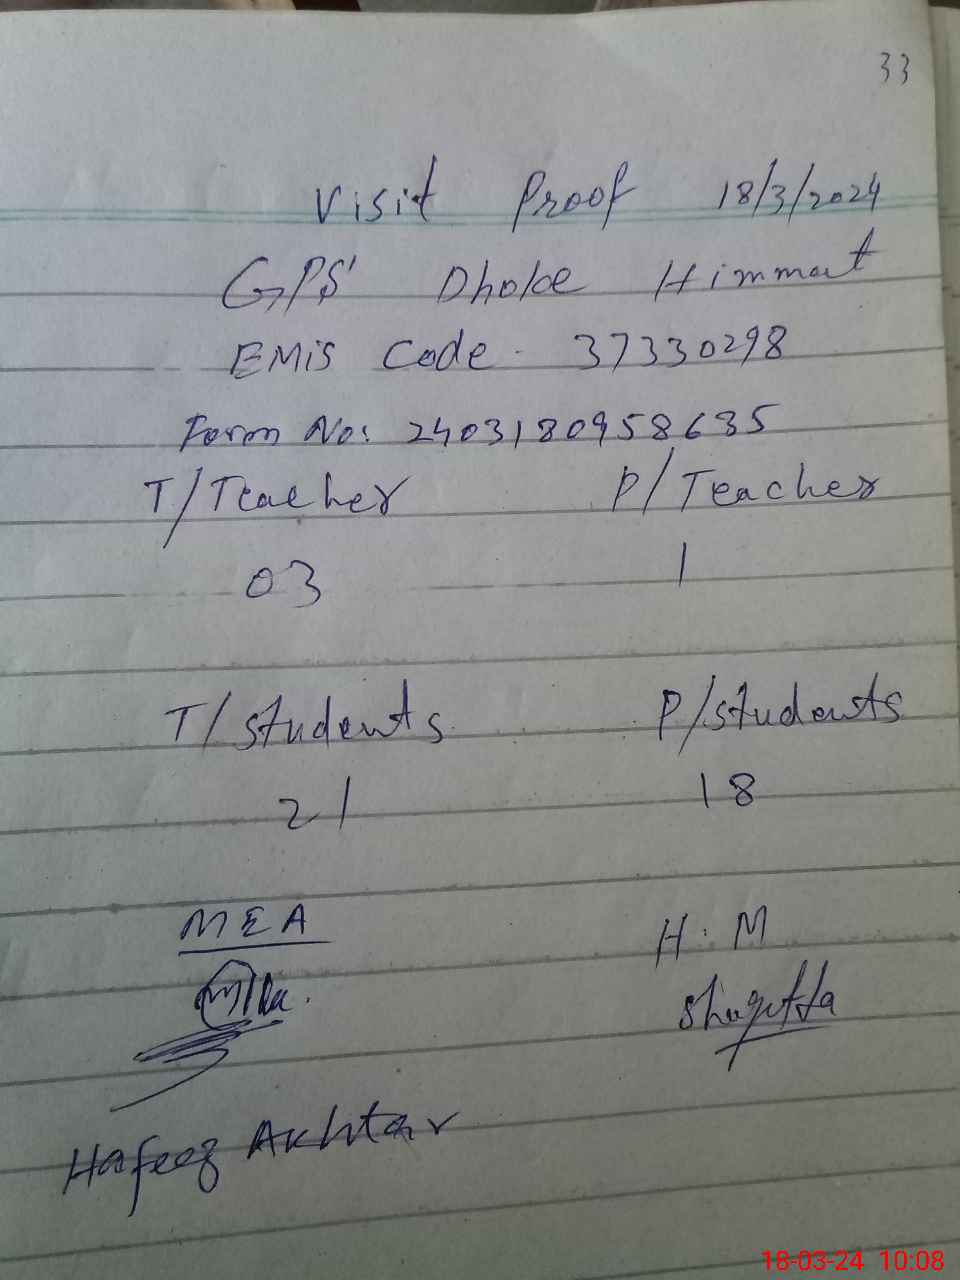 33
Visit Proof 18/3/2024
GPS Dhoke Himmat
EMIS Code. 37330298
Form No: 2403180958635
T/Teacher P/Teacher
03 1
T/students P/students
21 18
MEA H.M
Shagufta
Hafeez Akhtar
18-03-24 10:08